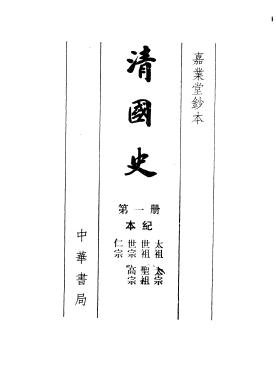 嘉業堂鈔本
清國史
第一册
本紀
太祖 太宗
世祖 聖祖
世宗 高宗
仁宗
中華書局